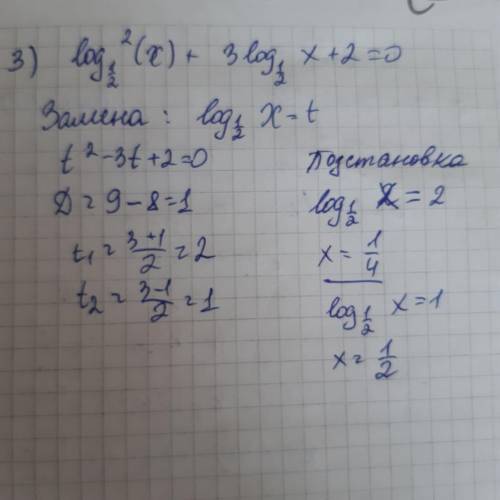 3) log²_{1/2}(x) + 3log_{1/2} x + 2 = 0
Замена : log_{1/2} x = t
t² - 3t + 2 = 0
D = 9 - 8 = 1
t₁ = (3+1)/2 = 2
t₂ = (3-1)/2 = 1
Подстановка
log_{1/2} x = 2
x = 1/4
log_{1/2} x = 1
x = 1/2